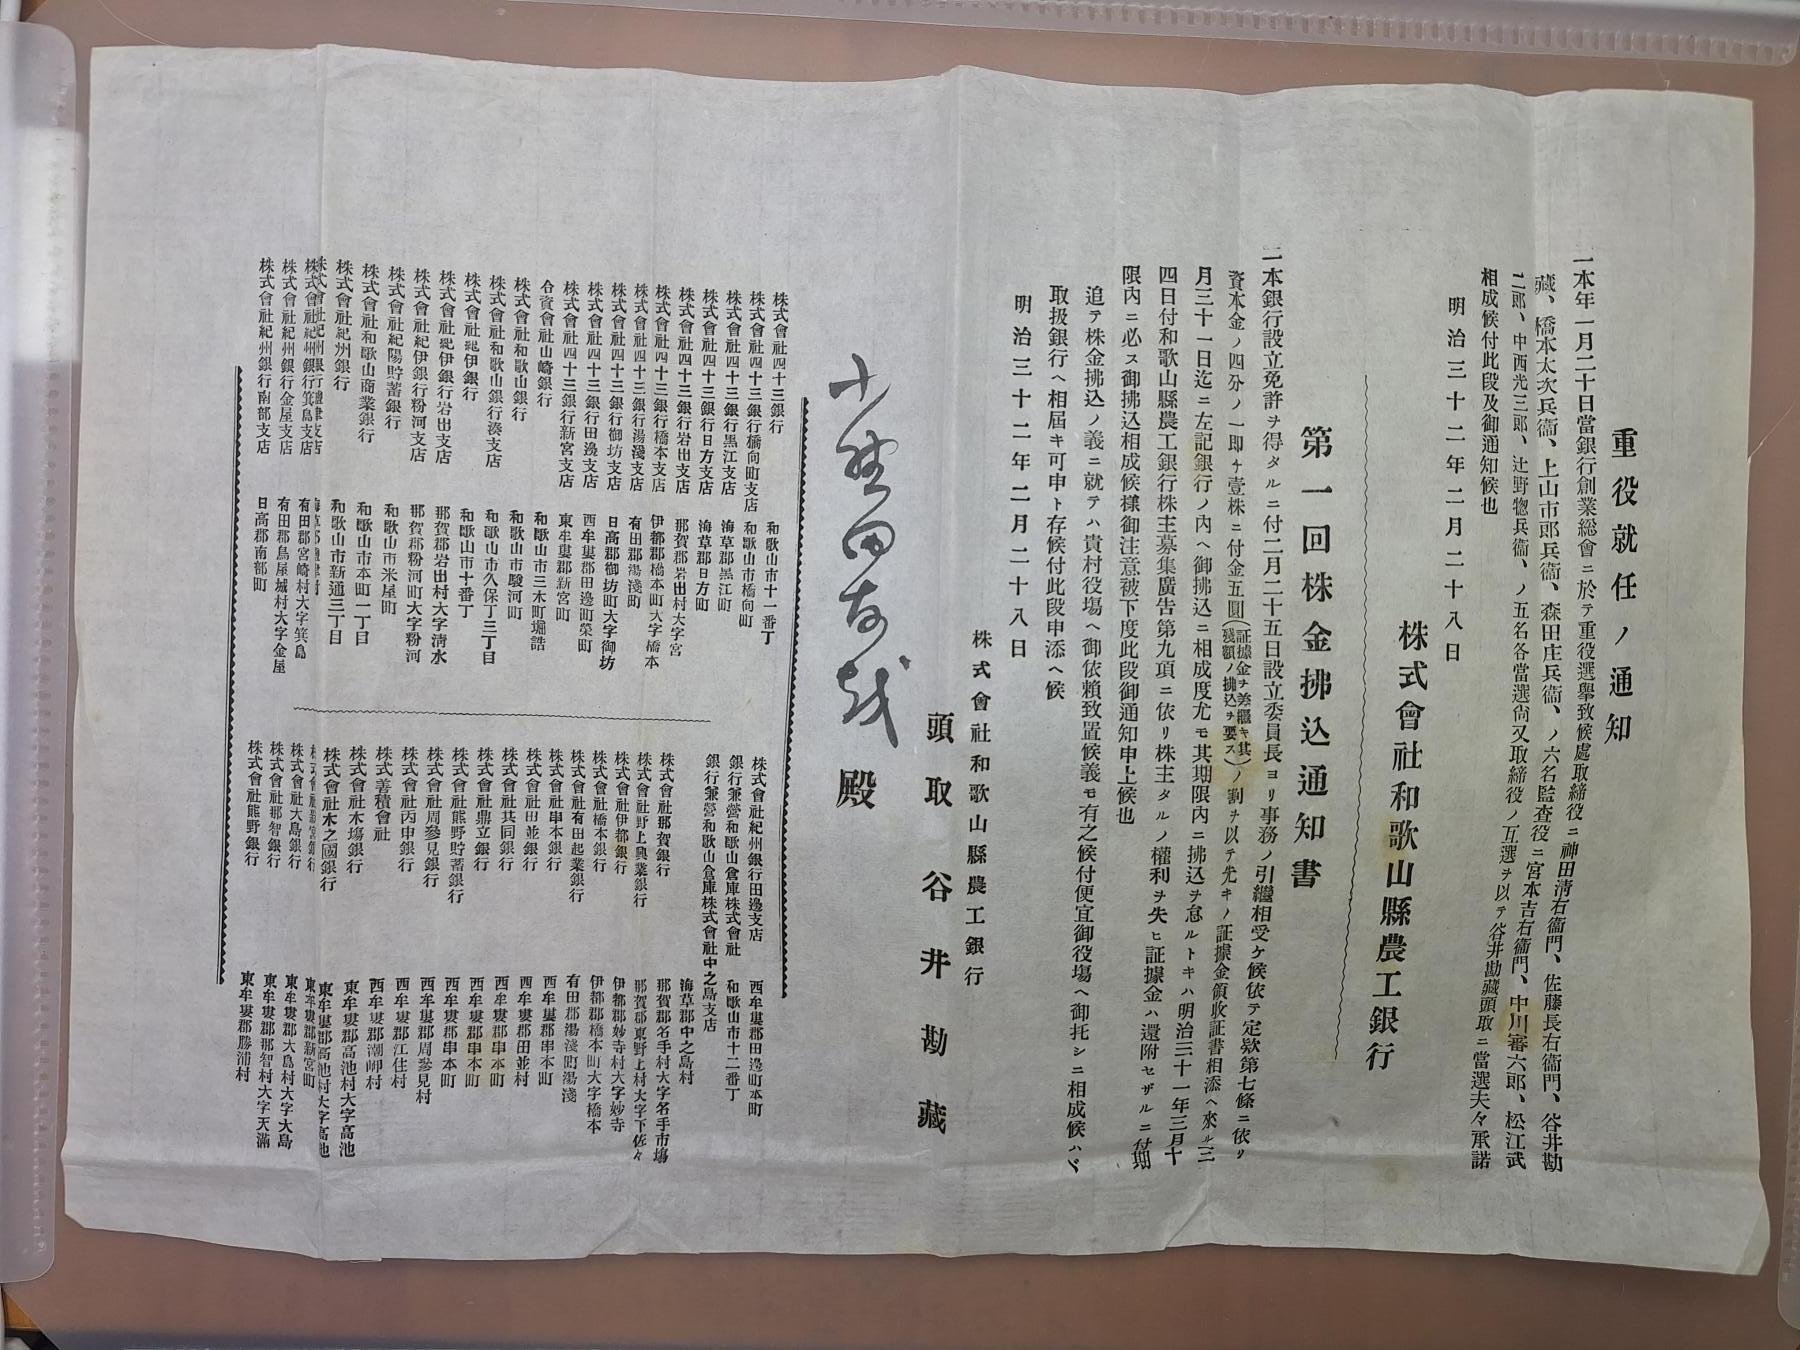 重役就任ノ通知
一本年一月二十日當銀行創業総會ニ於テ重役選擧致候處取締役ニ神田淸右衞門、佐藤長右衞門、谷井勘
藏、橋本太次兵衞、上山市郎兵衞、森田庄兵衞、ノ六名監査役ニ宮本吉右衞門、中川審六郎、松江武
二郎、中西光三郎、辻野惣兵衞、ノ五名各當選尙又取締役ノ互選ヲ以テ谷井勘藏頭取ニ當選夫々承諾
相成候付此段及御通知候也
明治三十二年二月二十八日
株式會社和歌山縣農工銀行
第一回株金拂込通知書
一本銀行設立免許ヲ得タルニ付二月二十五日設立委員長ヨリ事務ノ引繼相受ケ候依テ定欵第七條ニ依リ
資本金ノ四分ノ一即チ壹株ニ付金五圓(証據金ヲ差繼キ其殘額ノ拂込ヲ要ス)ノ割ヲ以テ先キノ証據金領收証書相添ヘ來ル三
月三十一日迄ニ左記銀行ノ內ヘ御拂込ニ相成度尤モ其期限內ニ拂込ヲ怠ルトキハ明治三十一年三月十
四日付和歌山縣農工銀行株主募集廣告第九項ニ依リ株主タルノ權利ヲ失ヒ証據金ハ還附セザルニ付期
限內ニ必ス御拂込相成候樣御注意被下度此段御通知申上候也
追テ株金拂込ノ義ニ就テハ貴村役塲ヘ御依賴致置候義モ有之候付便宜御役塲ヘ御托シニ相成候ハヾ
取扱銀行ヘ相屆キ可申ト存候付此段申添ヘ候
明治三十二年二月二十八日
株式會社和歌山縣農工銀行
頭取谷井勘藏
殿
株式會社四十三銀行 和歌山市十一番丁
株式會社四十三銀行橋向町支店 和歌山市橋向町
株式會社四十三銀行黑江支店 海草郡黑江町
株式會社四十三銀行日方支店 海草郡日方町
株式會社四十三銀行岩出支店 那賀郡岩出村大字宮
株式會社四十三銀行橋本支店 伊都郡橋本町大字橋本
株式會社四十三銀行湯淺支店 有田郡湯淺町
株式會社四十三銀行御坊支店 日高郡御坊町大字御坊
株式會社四十三銀行田邊支店 西牟婁郡田邊町榮町
株式會社四十三銀行新宮支店 東牟婁郡新宮町
合資會社山崎銀行 和歌山市三木町堀詰
株式會社和歌山銀行 和歌山市駿河町
株式會社和歌山銀行湊支店 和歌山市久保丁三丁目
株式會社紀伊銀行 和歌山市十番丁
株式會社紀伊銀行岩出支店 那賀郡岩出村大字淸水
株式會社紀伊銀行粉河支店 那賀郡粉河町大字粉河
株式會社紀陽貯蓄銀行 和歌山市米屋町
株式會社和歌山商業銀行 和歌山市本町一丁目
株式會社紀州銀行 和歌山市新通三丁目
株式會社紀州銀行箕島支店 有田郡宮崎村大字箕島
株式會社紀州銀行金屋支店 有田郡鳥屋城村大字金屋
株式會社紀州銀行南部支店 日高郡南部町
株式會社紀州銀行田邊支店 西牟婁郡田邊町本町
銀行兼營和歌山倉庫株式會社 和歌山市十二番丁
銀行兼營和歌山倉庫株式會社中之島支店 海草郡中之島村
株式會社那賀銀行 那賀郡名手村大字名手市塲
株式會社野上興業銀行 那賀郡東野上村大字下佐々
株式會社伊都銀行 伊都郡妙寺村大字妙寺
株式會社橋本銀行 伊都郡橋本町大字橋本
株式會社有田起業銀行 有田郡湯淺町湯淺
株式會社串本銀行 西牟婁郡串本町
株式會社田並銀行 西牟婁郡田並村
株式會社共同銀行 西牟婁郡串本町
株式會社鼎立銀行 西牟婁郡串本町
株式會社熊野貯蓄銀行 西牟婁郡串本町
株式會社周參見銀行 西牟婁郡周參見村
株式會社丙申銀行 西牟婁郡江住村
株式善積會社 西牟婁郡潮岬村
株式會社木塲銀行 東牟婁郡高池村大字高池
株式會社木之國銀行 東牟婁郡高池村大字高池
株式會社新宮銀行 東牟婁郡新宮町
株式會社大島銀行 東牟婁郡大島村大字大島
株式會社那智銀行 東牟婁郡那智村大字天滿
株式會社熊野銀行 東牟婁郡勝浦村